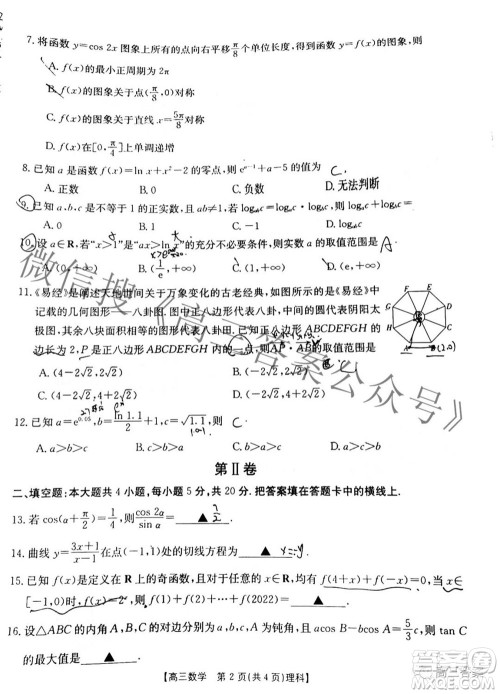 7. 将函数 y=cos 2x 图象上所有的点向右平移 π/8 个单位长度,得到函数 y=f(x) 的图象,则
A. f(x) 的最小正周期为 2π
B. f(x) 的图象关于点(π/8,0)对称
C. f(x) 的图象关于直线 x=5π/8 对称
D. f(x) 在[0,π/4]上单调递增
8. 已知 a 是函数 f(x)=ln x+x²-2 的零点,则 e^(a-1)+a-5 的值为 C.
A. 正数 B. 0 C. 负数 D. 无法判断
9. 已知 a,b,c 是不等于 1 的正实数,且 ab≠1,若
10. 设 a∈R,若“x>1”是“ax>ln x”的充分不必要条件,则实数 a 的取值范围是 A
B. (1/e,+∞) C. (1,+∞) D. (e,+∞)
11.《易经》是阐述天地世间关于万象变化的古老经典,如图所示的是《易经》中
记载的几何图形——八卦图.图中正八边形代表八卦,中间的圆代表阴阳太
极图,其余八块面积相等的图形代表八卦田.已知正八边形 ABCDEFGH 的
边长为 2,P 是正八边形 ABCDEFGH
A. (4-2√2,4) B. (4-2√2,4+2√2)
C. (-2√2,4+2√2) D. (-2√2,4)
12. 已知 a=e^0.05,b=ln 1.1/2+1,c=√1.1,则
A. a>b>c B. c>b>a C. b>a>c D. a>c>b
第Ⅱ卷
二、填空题:本大题共 4 小题,每小题 5 分,共 20 分.把答案填在答题卡中的横线上.
13. 若 cos(α+π/2)=cos 2α/sin α,则 ▲
14. 曲线 y=(3x+1)/(x-1) 在点(-1,1)处的切线方程为 ▲
15. 已知 f(x) 是定义在 R 上的奇函数,且对于任意的 x∈R,均有 f(4+x)+f(-x)=0,当 x∈
[-1,0)时,f(x)=2^x,则 f(1)+f(2)+f(3)+…+f(2022)= ▲
16. 设△ABC 的内角 A,B,C 的对边分别为 a,b,c,且满足 acos B-bcos A=5/3 c,则
的最大值是 ▲
高三数学 第 2 页(共 4 页)理科
微信搜《高三答案公众号》